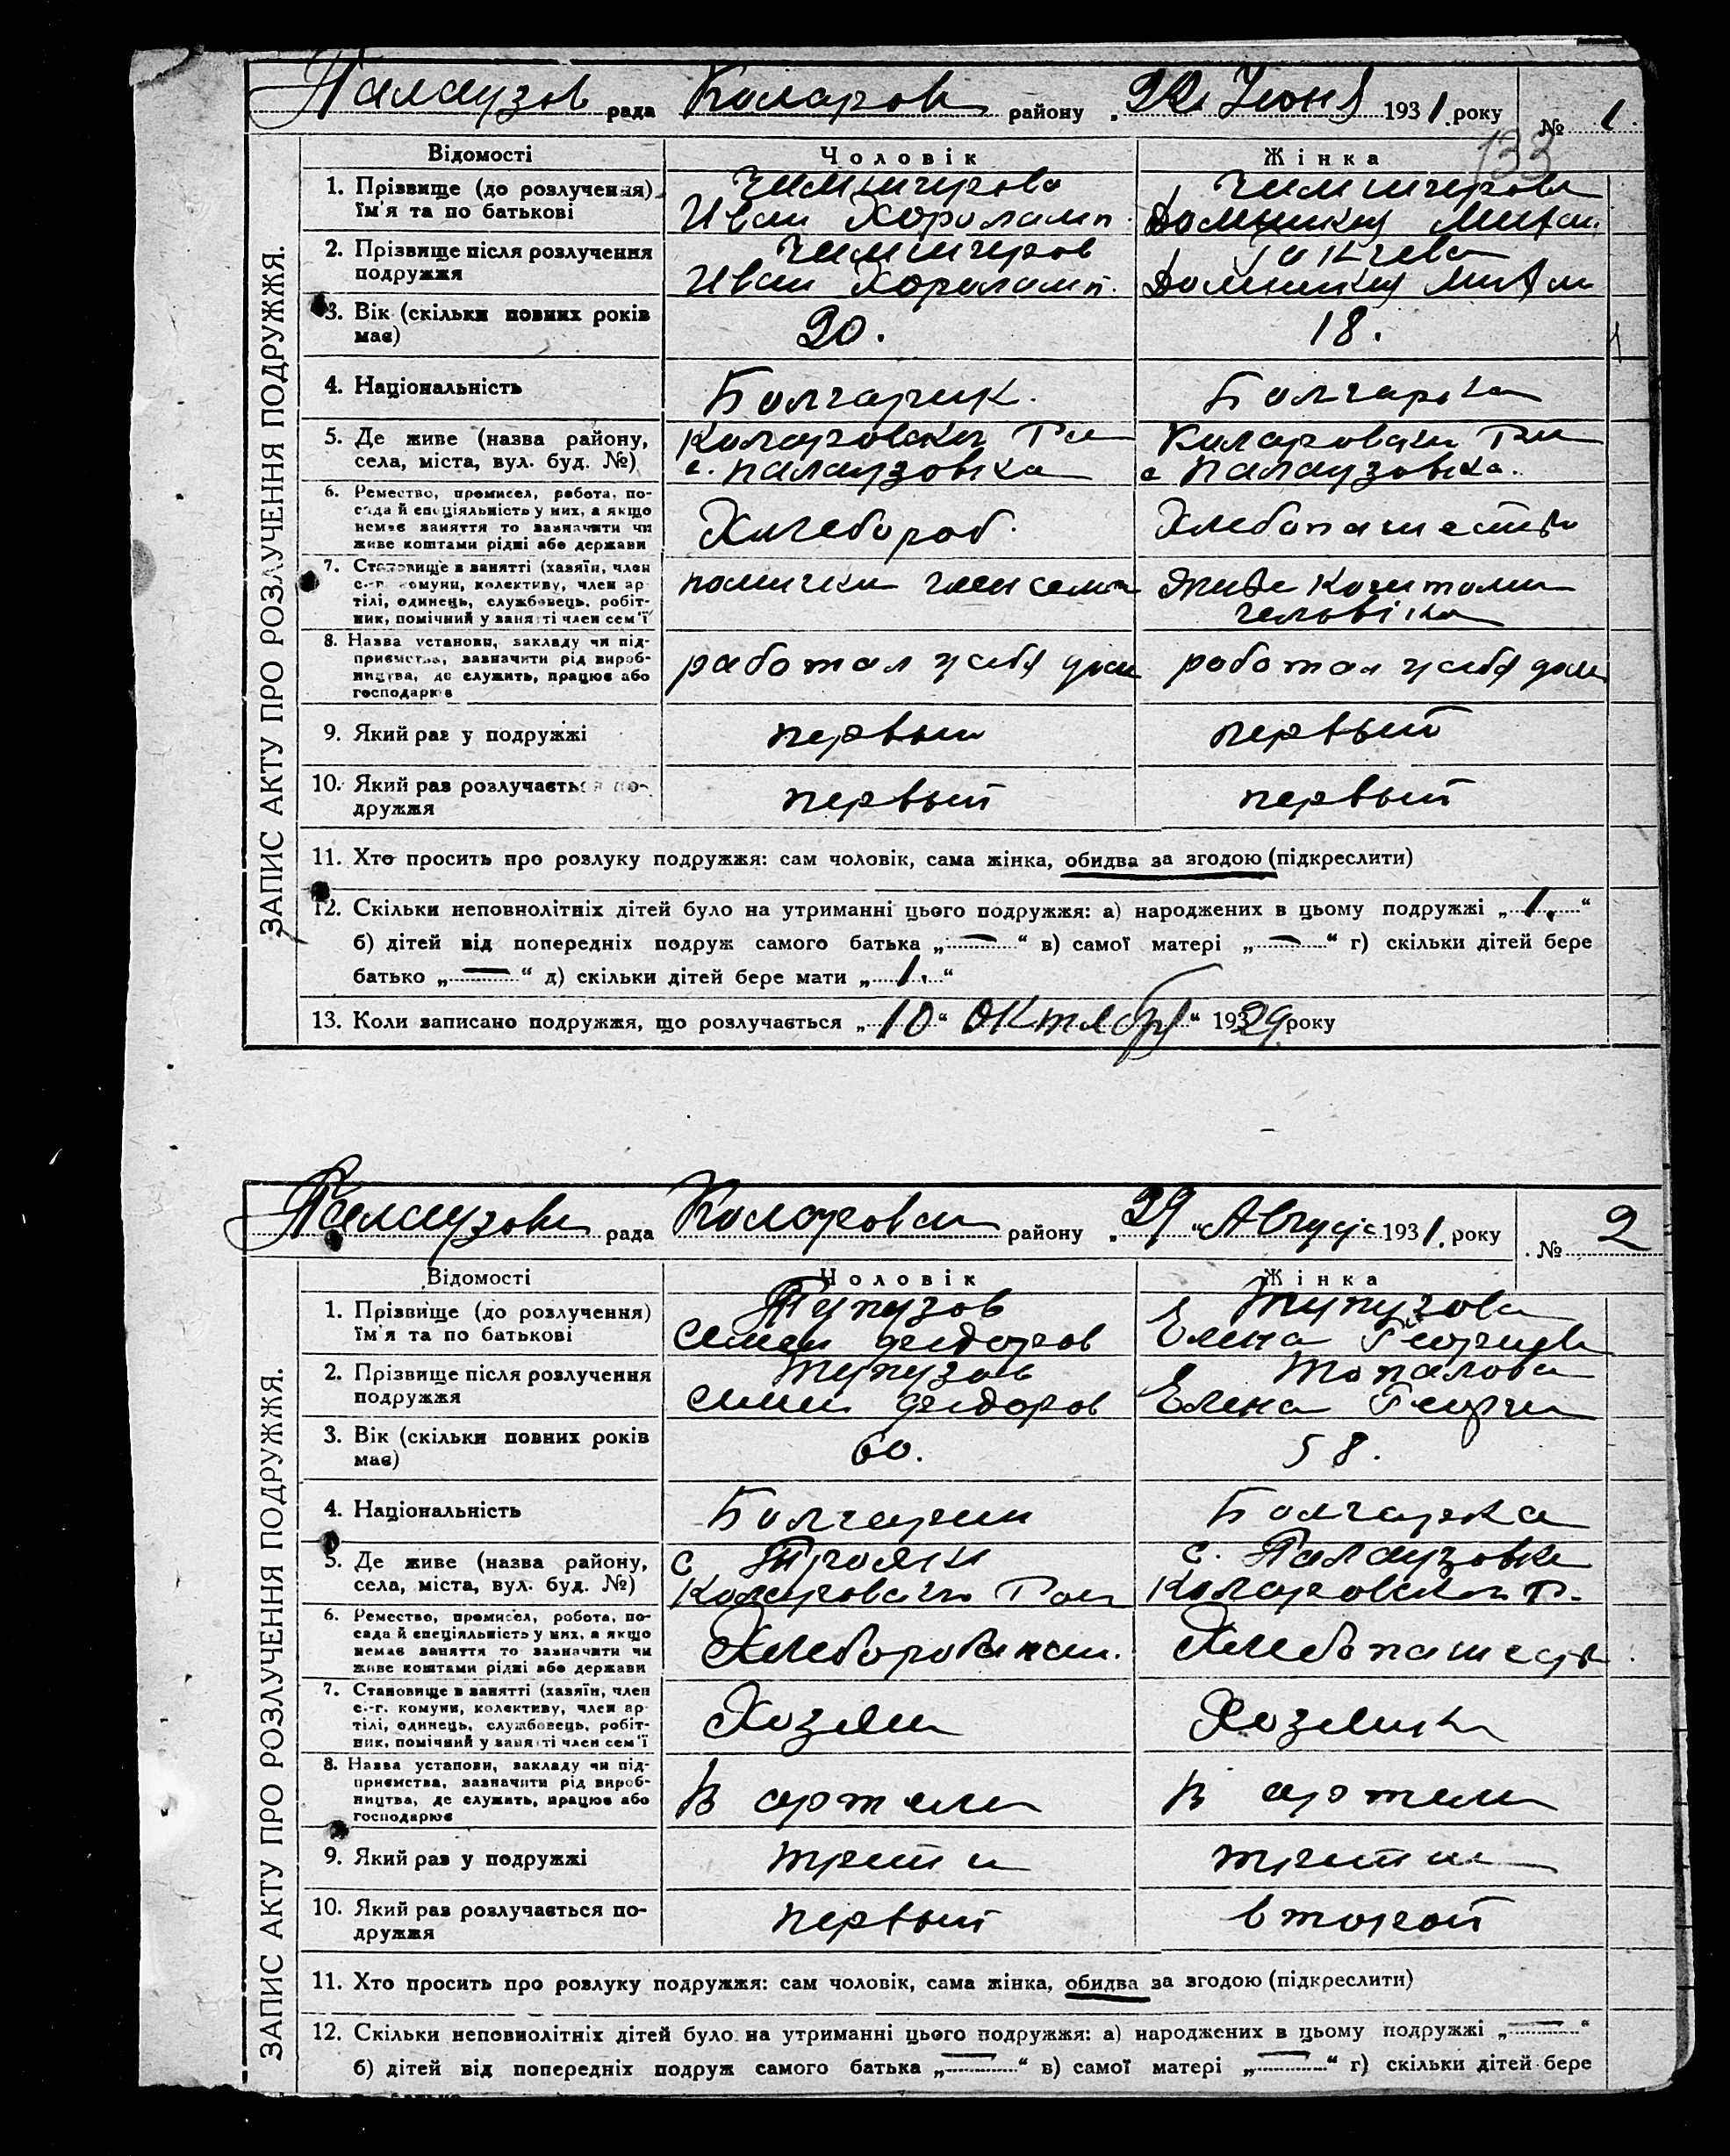 Палаузов рада Коларов району „ 22 Июня 1931 року № 1
133
Відомості Чоловік Жінка
1. Прізвище (до розлучення) Чимширов Чимширова
ім'я та по батькові Иван Хороламп. Домникия Михаи
2. Прізвище після розлучення Чимширов
подружжя Иван Хороламп. Домникия Михаи
3. Вік (скільки повних років 20. 18.
має)
4. Національність Болгарик. Болгарка
5. Де живе (назва району, Коларовски Ра Коларовски Ра
села, міста, вул. буд. №) с. Палаузовка с Палаузовка.
6. Ремество, промисел, робота, по-
сада й спеціяльність у них, а якщо Хлебороб. Хлебопашество
немає заняття то зазначити чи
живе коштами рідні або держави
7. Становище в занятті (хазяїн, член
с.-г. комуни, колективу, член ар- член семи Живе коштами
тілі, одинець, службовець, робіт- человіка
ник, помічний у занятті член сем'ї
8. Назва установи, закладу чи під-
приємства, зазначити рід вироб- работал у себя дом работал у себя дом
ництва, де служить, працює або
господарює
9. Який раз у подружжі первый первый
10. Який раз розлучається по- первый первый
дружжя
11. Хто просить про розлуку подружжя: сам чоловік, сама жінка, обидва за згодою (підкреслити)
12. Скільки неповнолітніх дітей було на утриманні цього подружжя: а) народжених в цьому подружжі „ 1. “
б) дітей від попередніх подруж самого батька „ — “ в) самої матері „ — “ г) скільки дітей бере
батько „ — “ д) скільки дітей бере мати „ 1. “
13. Коли записано подружжя, що розлучається „ 10 “ Октября “ 1929 року
ЗАПИС АКТУ ПРО РОЗЛУЧЕННЯ ПОДРУЖЖЯ.
Палаузов рада Коларовски району „ 29 “ Августа 1931. року № 2
Відомості Чоловік Жінка
1. Прізвище (до розлучення) Тупузов Тупузова
ім'я та по батькові Семен Федоров Елена Георгиев
2. Прізвище після розлучення Тупузов Топалова
подружжя Семен Федоров Елена Георги
3. Вік (скільки повних років 60. 58.
має)
4. Національність Болгарин Болгарка
5. Де живе (назва району, с Трояни с. Палаузовка
села, міста, вул. буд. №) Коларовски Рай Коларовский Р.
6. Ремество, промисел, робота, по-
сада й спеціяльність у них, а якщо Хлебопашеств
немає заняття то зазначити чи
живе коштами рідні або держави
7. Становище в занятті (хазяїн, член
с.-г. комуни, колективу, член ар- Хозяин Хозяинка
тілі, одинець, службовець, робіт-
ник, помічний у занятті член сем'ї
8. Назва установи, закладу чи під-
приємства, зазначити рід вироб- В артели В артели
ництва, де служить, працює або
господарює
9. Який раз у подружжі трети третии
10. Який раз розлучається по- первый второй
дружжя
11. Хто просить про розлуку подружжя: сам чоловік, сама жінка, обидва за згодою (підкреслити)
12. Скільки неповнолітніх дітей було на утриманні цього подружжя: а) народжених в цьому подружжі „ — “
б) дітей від попередніх подруж самого батька „ — “ в) самої матері „ — “ г) скільки дітей бере
ЗАПИС АКТУ ПРО РОЗЛУЧЕННЯ ПОДРУЖЖЯ.